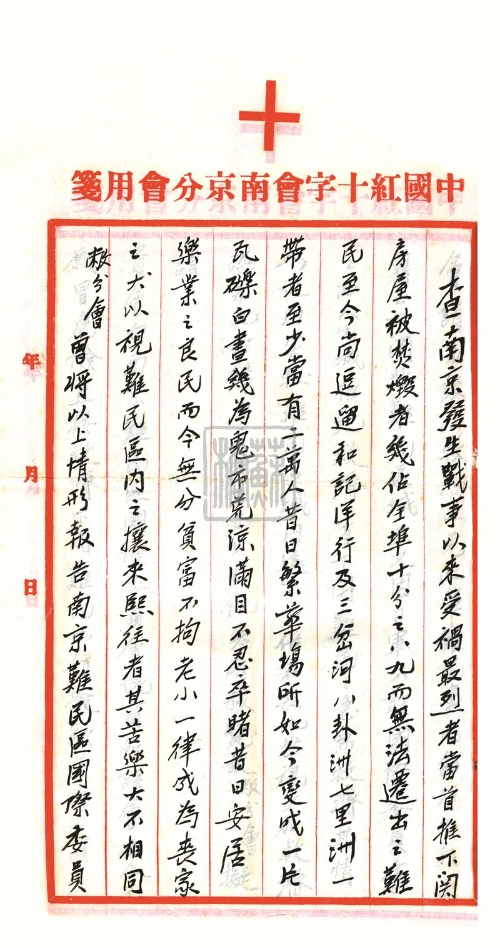 中國紅十字會南京分會用箋
查南京發生戰事以來受禍最烈者當首推下関
房屋被焚燬者幾佔全埠十分之八九而無法遷出之難
民至今尚逗遛和記洋行及三岔河八卦洲七里洲一
帶者至少當有二萬人昔日繁華塲所如今變成一片
瓦礫白晝幾為鬼市荒涼滿目不忍卒睹昔日安居
樂業之良民而今無分貧富不拘老小一律成為喪家
之犬以視難民區內之攘來熙往者其苦樂大不相同
敝分會曾將以上情形報告南京難民區國際委員
年月日